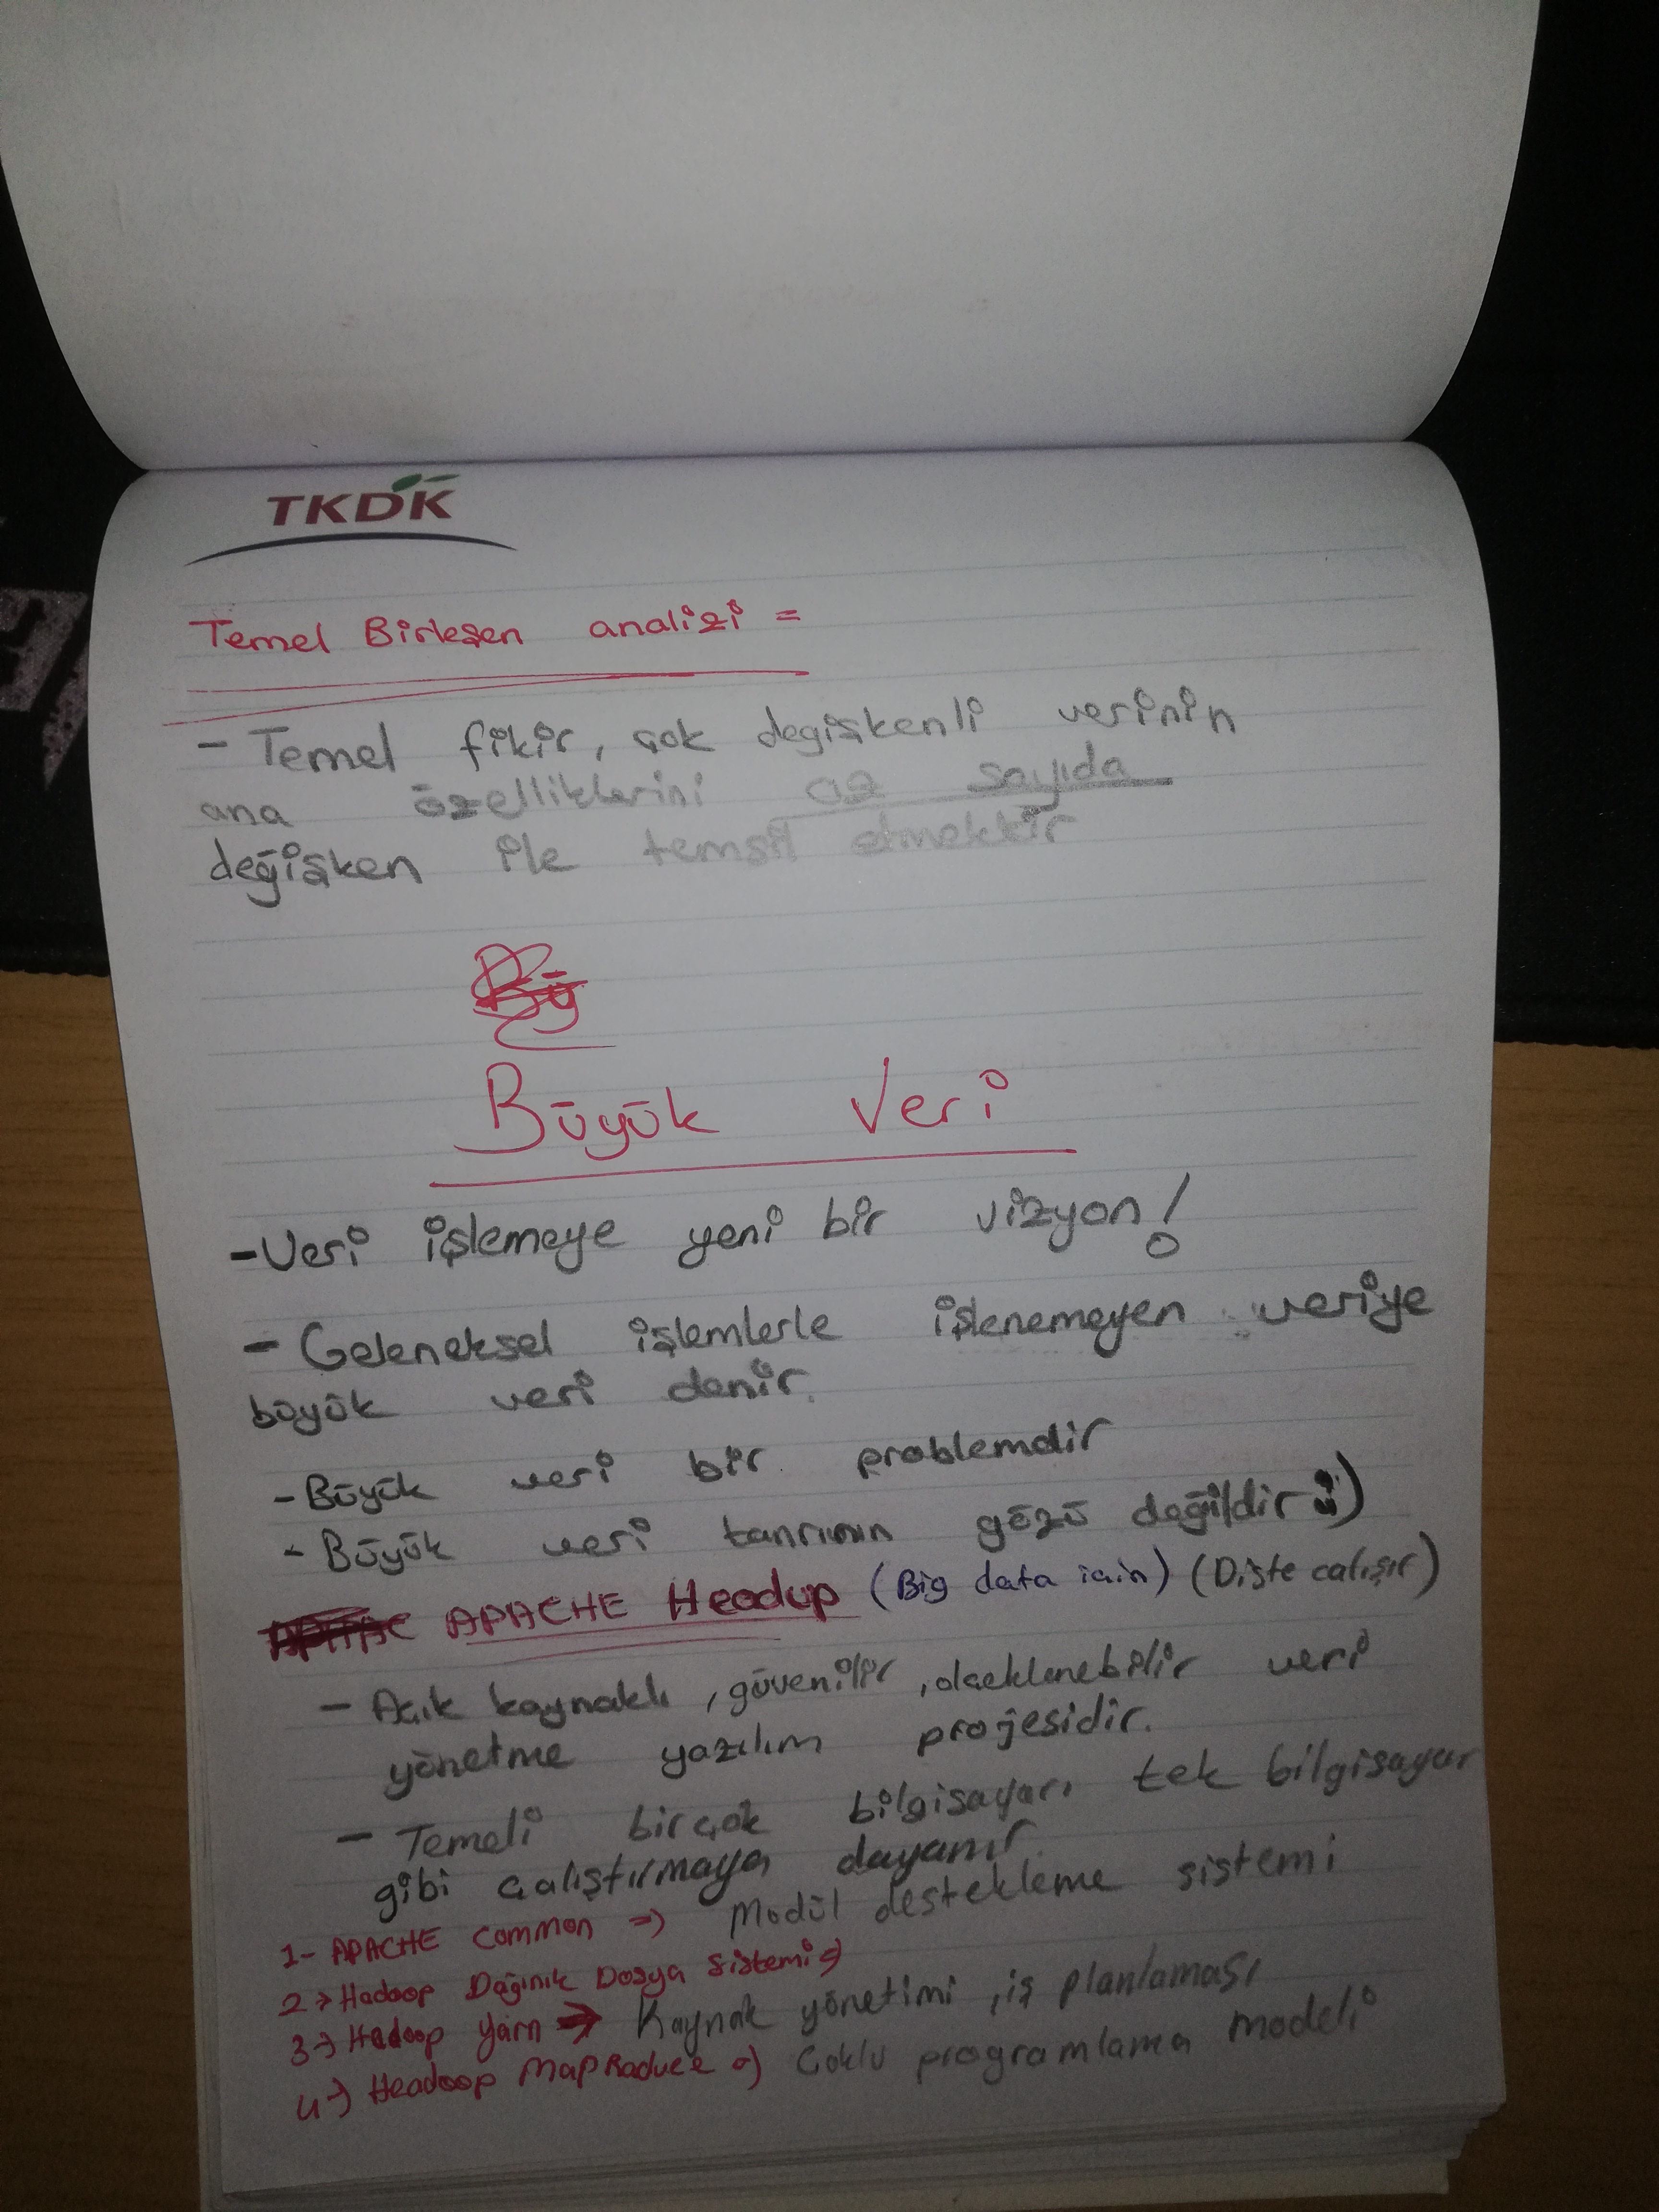 TKDK
Temel Birleşen analizi =
- Temel fikir, çok degişkenli verinin
ana özelliklerini az sayıda
değişken ile temsil etmektir
Bü
Büyük Veri
- Veri işlemeye yeni bir vizyon!
- Geleneksel işlemlerle işlenemeyen veriye
büyük veri denir.
- Büyük veri bir problemdir
- Büyük veri tanrının gözü değildir :)
APACHE Headup (Big data için) (Dişte calışır)
- Açık kaynaklı, güvenilir, olceklenebilir veri
yönetme yazılım projesidir.
- Temeli birçok bilgisayarı tek bilgisayar
gibi çalıştırmaya dayanır.
1- APACHE common => Modül destekleme sistemi
2-> Hadoop Dağınık Dosya Sistemi =>
3-> Hadoop yarn => Kaynak yönetimi, iş planlaması
4-> Headoop MapRaduce => Çoklu programlama modeli